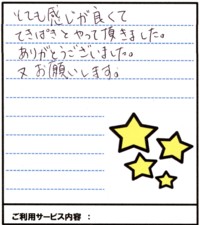 とても感じが良くて
てきぱきとやって頂きました。
ありがとうございました。
又お願いします。
ご利用サービス内容：